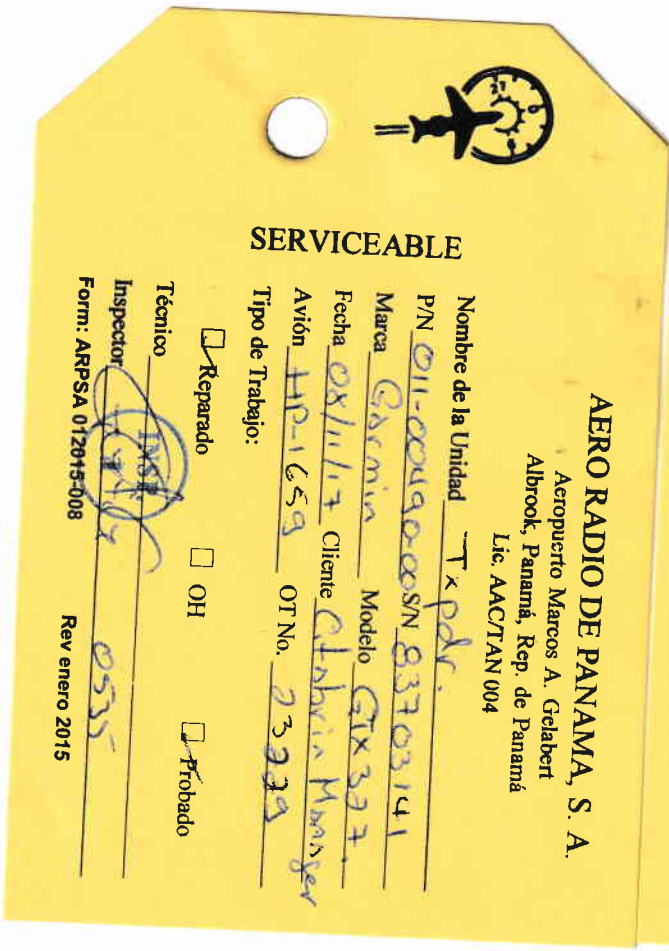 AERO RADIO DE PANAMA, S. A.
Aeropuerto Marcos A. Gelabert
Albrook, Panamá, Rep. de Panamá
Lic. AAC/TAN 004
SERVICEABLE
Nombre de la Unidad Txpdr.
P/N 011-00490-00 S/N 83703141
Marca Garmin Modelo GTX327.
Fecha 08/11/17 Cliente
Avión HP-1659 OT No. 23229
Tipo de Trabajo:
Reparado OH Probado
Técnico
Inspector INSP 0535
Form: ARPSA 012015-008 Rev enero 2015